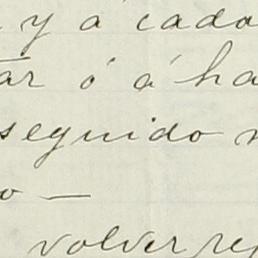 y á cado
ar ó á ha
seguido
o —
volver